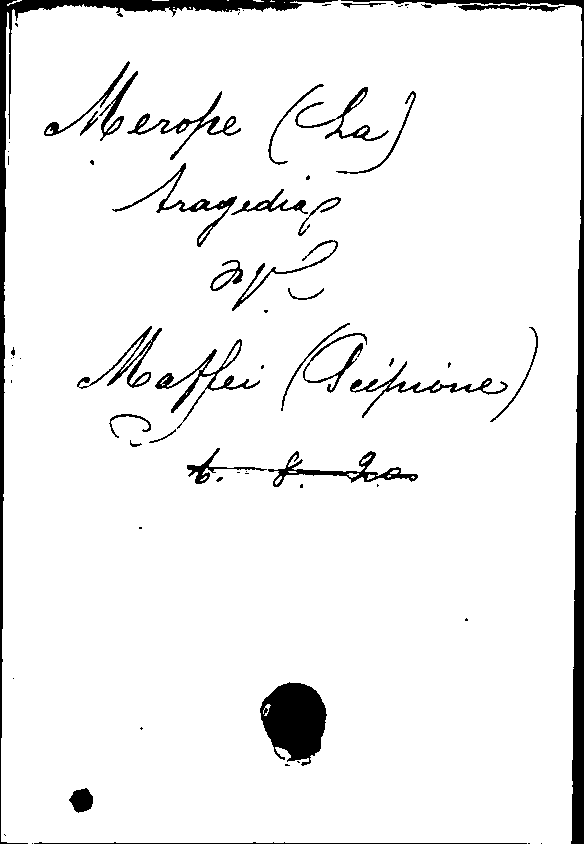 Merope (La)
tragedia
Maffei (Scipione)
6. 8. 20